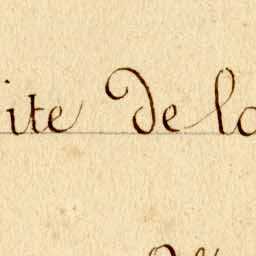 ite De la